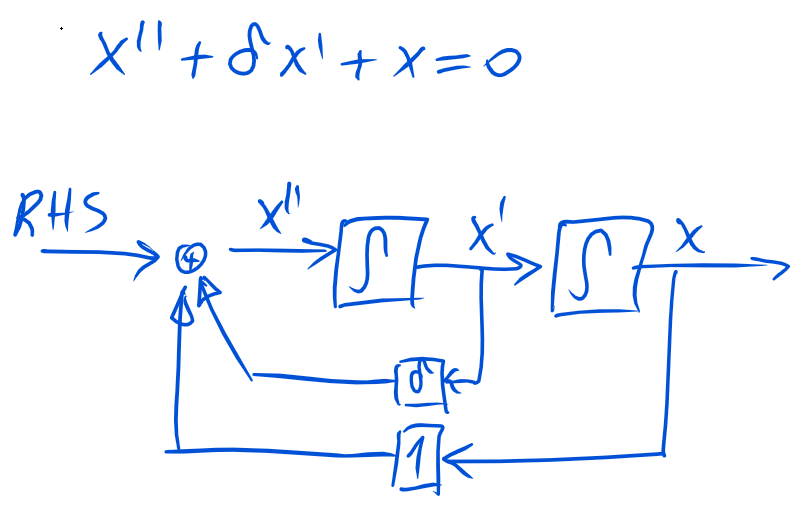 x'' + δx' + x = 0
RHS x'' x' x
+ ∫ ∫
δ
1